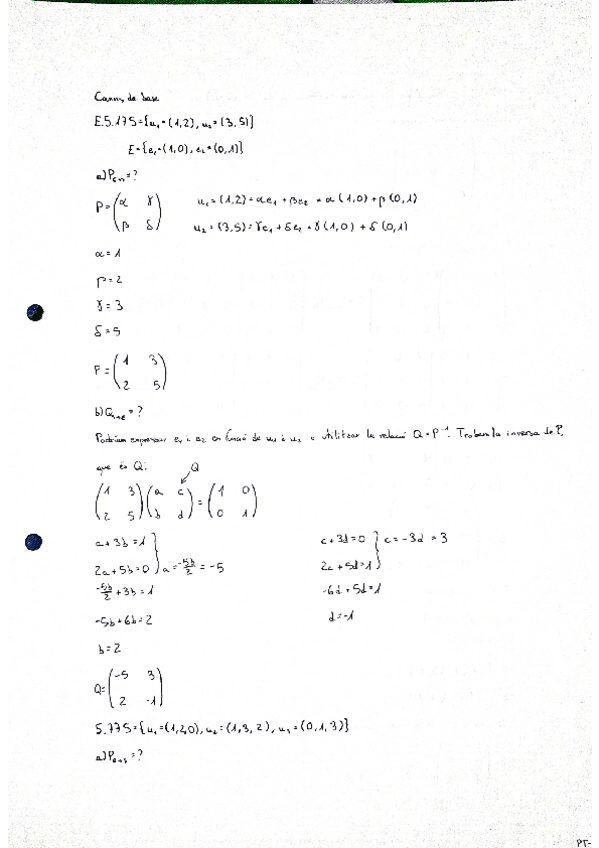 Canvis de base
E.5.17 S={u₁=(1,2), u₂=(3,5)}
E={e₁=(1,0), e₂=(0,1)}
a) P =?
P=(α γ
β δ)
u₁=(1,2)=αe₁+βe₂=α(1,0)+β(0,1)
u₂=(3,5)=γe₁+δe₂=γ(1,0)+δ(0,1)
α=1
β=2
γ=3
δ=5
P=(1 3
2 5)
b) Q =?
Podríem expressar e₁ i e₂ en funció de u₁ i u₂ o utilitzar la relació Q=P⁻¹. Trobem la inversa de P,
que és Q:
Q
(1 3 (a c = (1 0
2 5) b d) 0 1)
a+3b=1
2a+5b=0 } a=-5b/2=-5
-5b/2+3b=1
-5b+6b=2
b=2
c+3d=0 } c=-3d=3
2c+5d=1
-6d+5d=1
d=-1
Q=(-5 3
2 -1)
5.77 S={u₁=(1,2,0), u₂=(1,3,2), u₃=(0,1,3)}
a) P =?
PT-